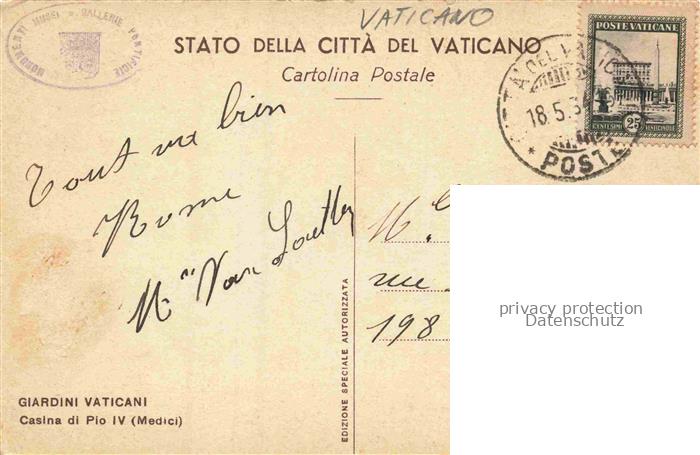 VATICANO
MONUMENTI MUSEI E GALLERIE PONTIFICIE
STATO DELLA CITTÀ DEL VATICANO
Cartolina Postale
POSTE VATICANE
CENTESIMI 25 VENTICINQUE
18.5.3
POSTE
Tout va bien
Rome
Mme Van
198
privacy protection
Datenschutz
EDIZIONE SPECIALE AUTORIZZATA
GIARDINI VATICANI
Casina di Pio IV (Medici)